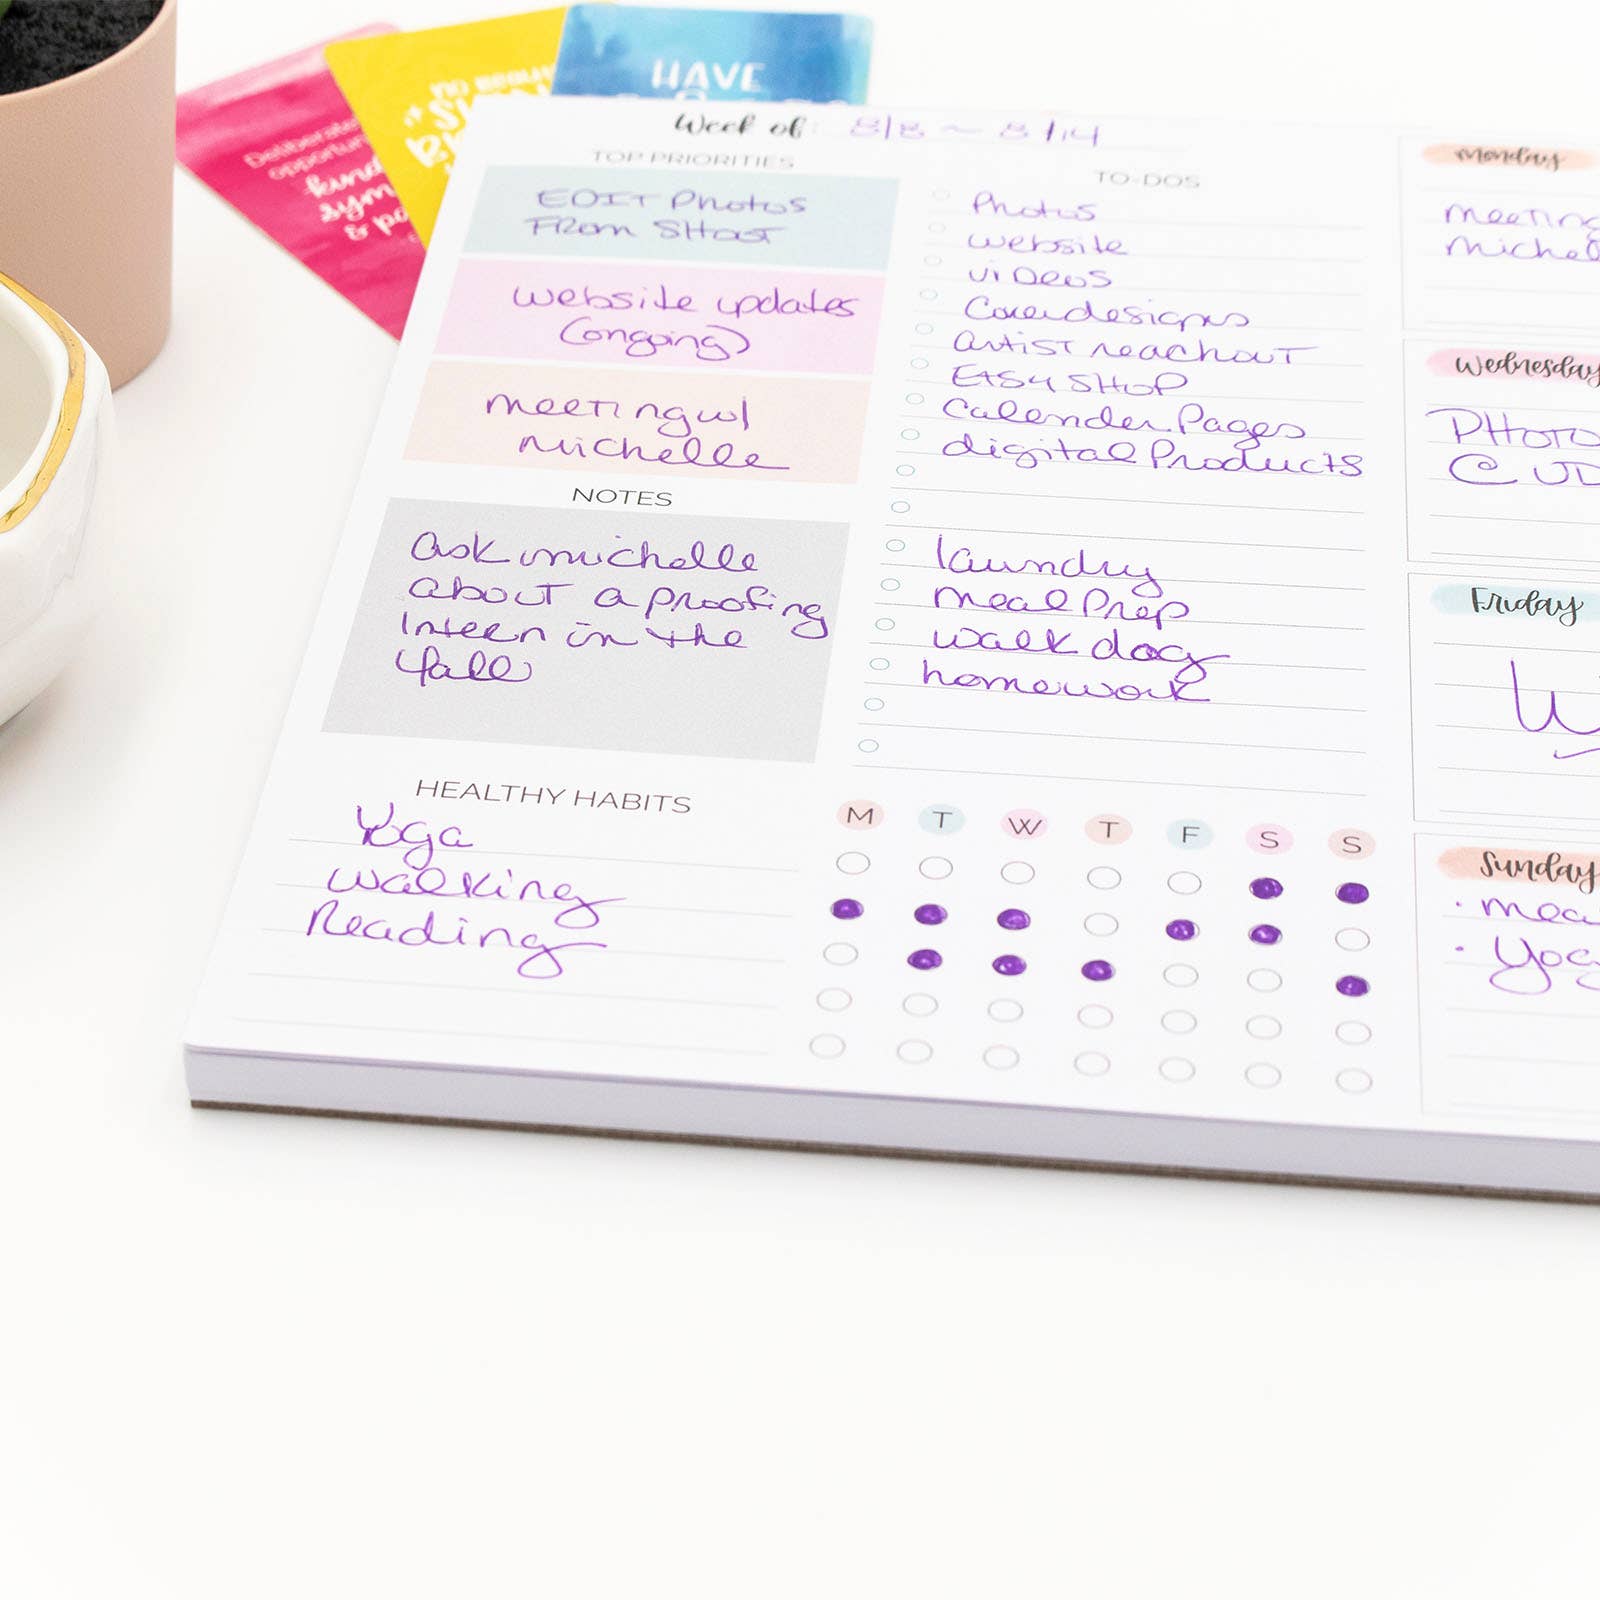 HAVE
Deliberate
kind
sym
& po
Week of: 8/8 ~ 8/14
TOP PRIORITIES
EDIT Photos
From SHoot
website updates
(ongoing)
meeting w/
michelle
NOTES
ask michelle
about a proofing
Intern in the
fall
TO-DOS
Photos
website
videos
Cover designs
artist reachout
Etsy SHOP
Calender Pages
digital Products
laundry
meal Prep
walk dog
homework
HEALTHY HABITS
Yoga
walking
Reading
M T W T F S S
monday
meeting
michel
Wednesday
PHOTO
Friday
Sunday
· mea
· Yog